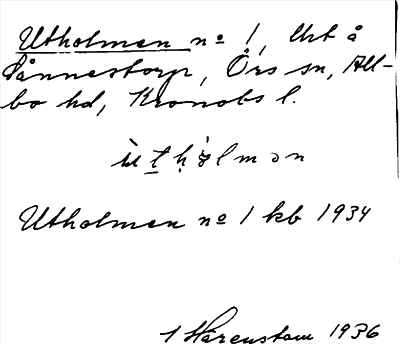 Utholmen no 1, Urt å
Sånnestorp, Örs sn, All-
bo hd, Kronobs l.
ùtḥòlmən
Utholmen no 1 kb 1934
Hårenstam 1936